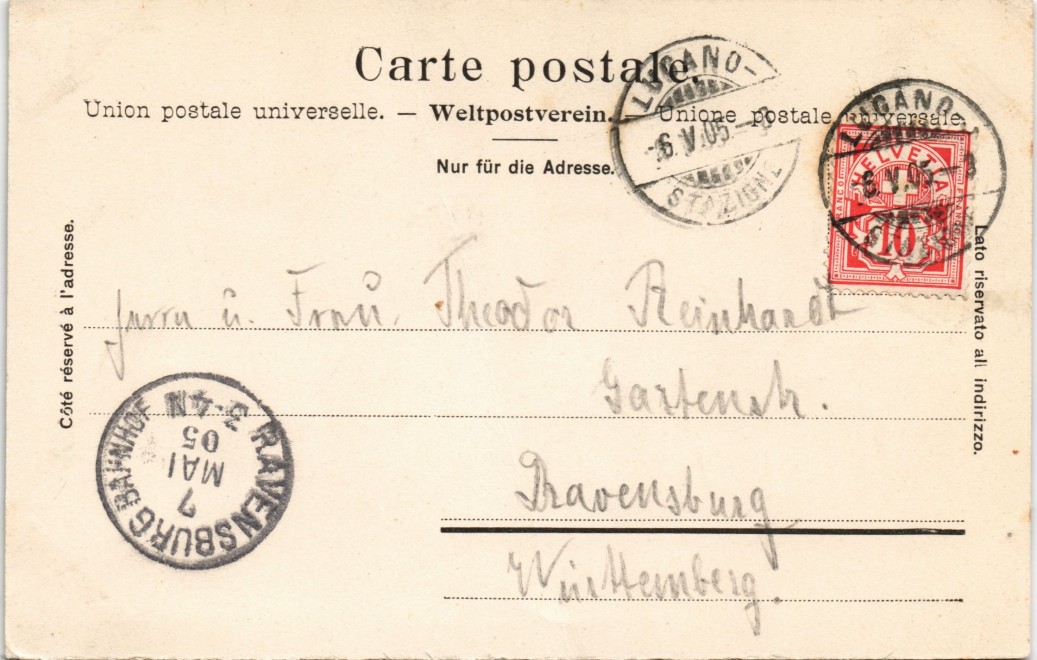 Carte postale.
Union postale universelle. — Weltpostverein. — Unione postale universale.
Nur für die Adresse.
LUGANO-
-6.V.05-8
STAZIONE
LUGANO-
6.V.05-8
HELVETIA
FRANCO
FRANCO
10
Côté réservé à l'adresse.
Lato riservato all indirizzo.
Herrn u. Frau. Theodor Reinhardt
Gartenstr.
Ravensburg
Württemberg.
RAVENSBURG BAHNHOF
7
MAI
05
3-4N